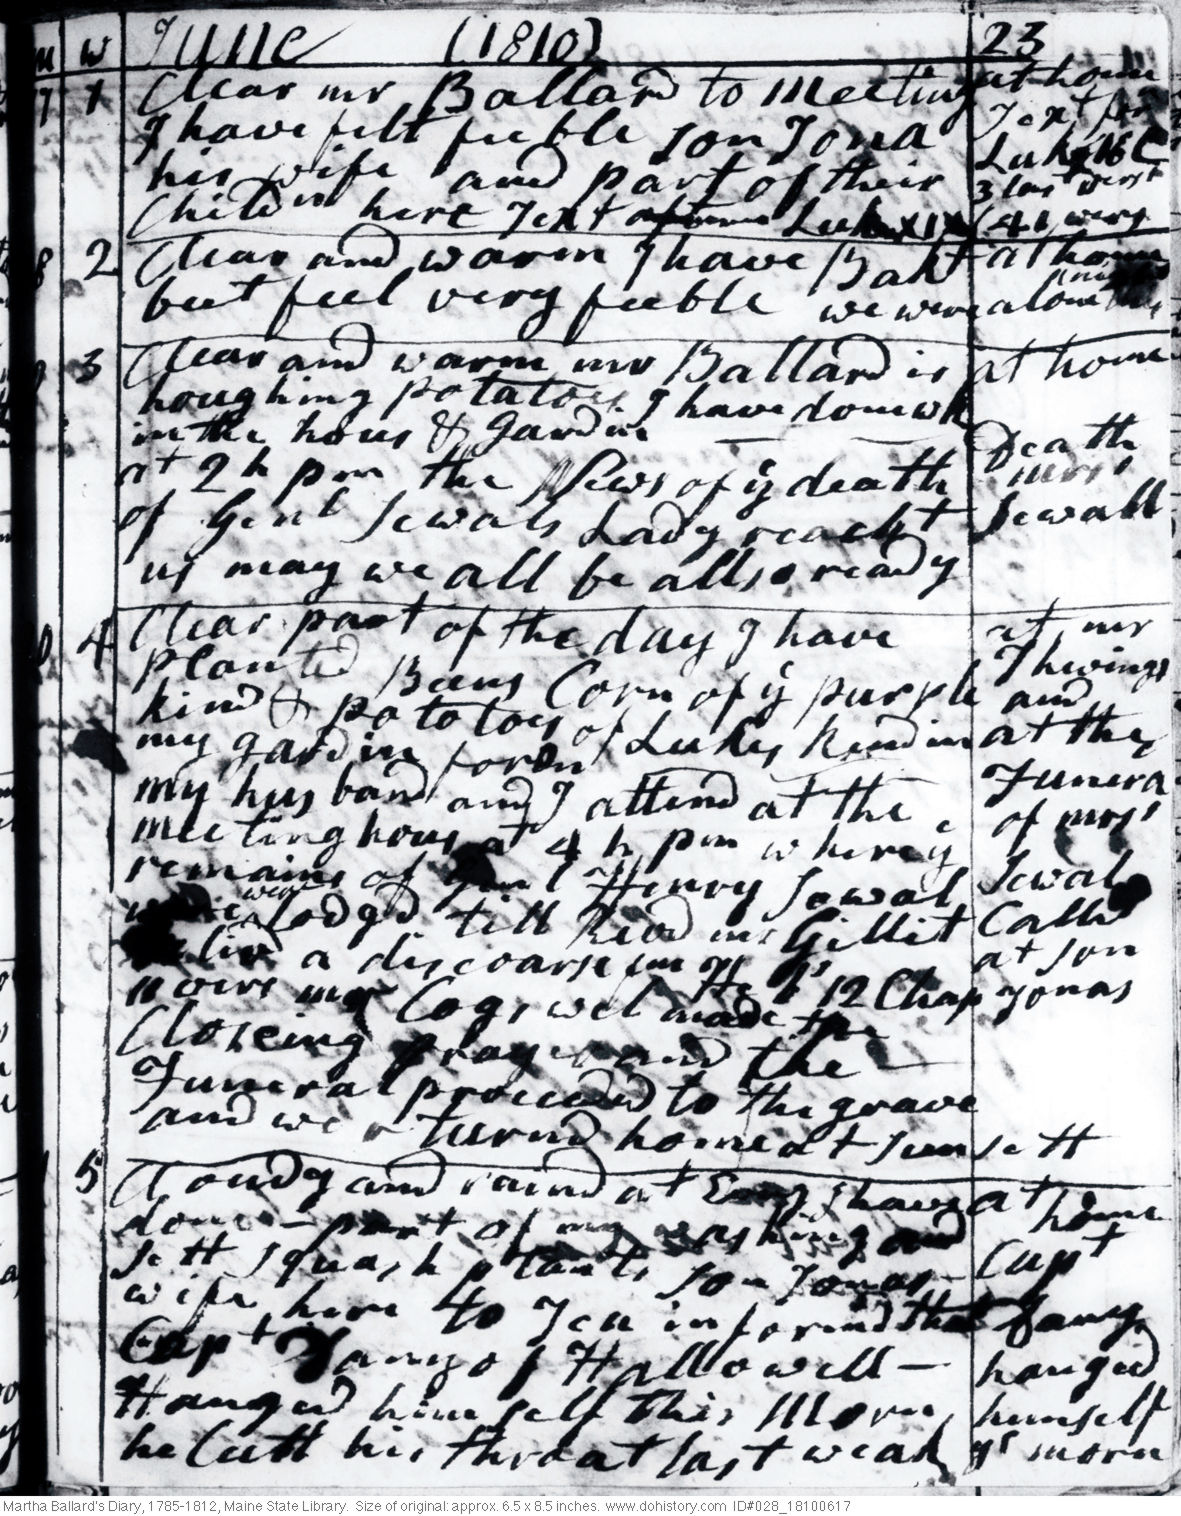 m w June (1810) 23
7 1 Clear mr Ballard to Meeting at home
I have felt feeble son Jona Text for
his wife and part of their Luke 16 C
Childrn here Text Luke XIX 3 last vers
(41 vers
8 2 Clear and warm I have Bakt at home
but feel very feeble we were alone
3 Clear and warm mr Ballard is at home
houghing potatoes I have done wk
in the hous & Gardin
at 2 h pm the News of ÿ death Death
of Genl Sewals Lady reacht mrss
us may we all be allso ready Sewall
4 Clear part of the day I have at mr
planted Beens Corn of ÿ purple Thwings
kind & potatoes of Lukes kind in and
my gardin foren at the
my husband and I attend at the Funera
meeting hous at 4 h pm where ÿ of mrss
remains of Genl Henry Sewal Sewal
were lodgd till Revd mr Gillit Calld
delivd a discoarse fm 12 Chap at son
11 vers mr Cogswel made the Jonas
Closeing prayer and the
Funeral proceeded to the grave
and we returnd home at sun sett
5 Cloudy and raind at Evng I have at home
done part of my washing and
sett squash plants son Jonas Capt
wife here to Tea informd that
Capt of Hallowell hanged
Hanged himself this Morn himself
he Cutt his throat last weak ys morn
Martha Ballard's Diary, 1785-1812, Maine State Library. Size of original: approx. 6.5 x 8.5 inches. www.dohistory.com ID#028_18100617